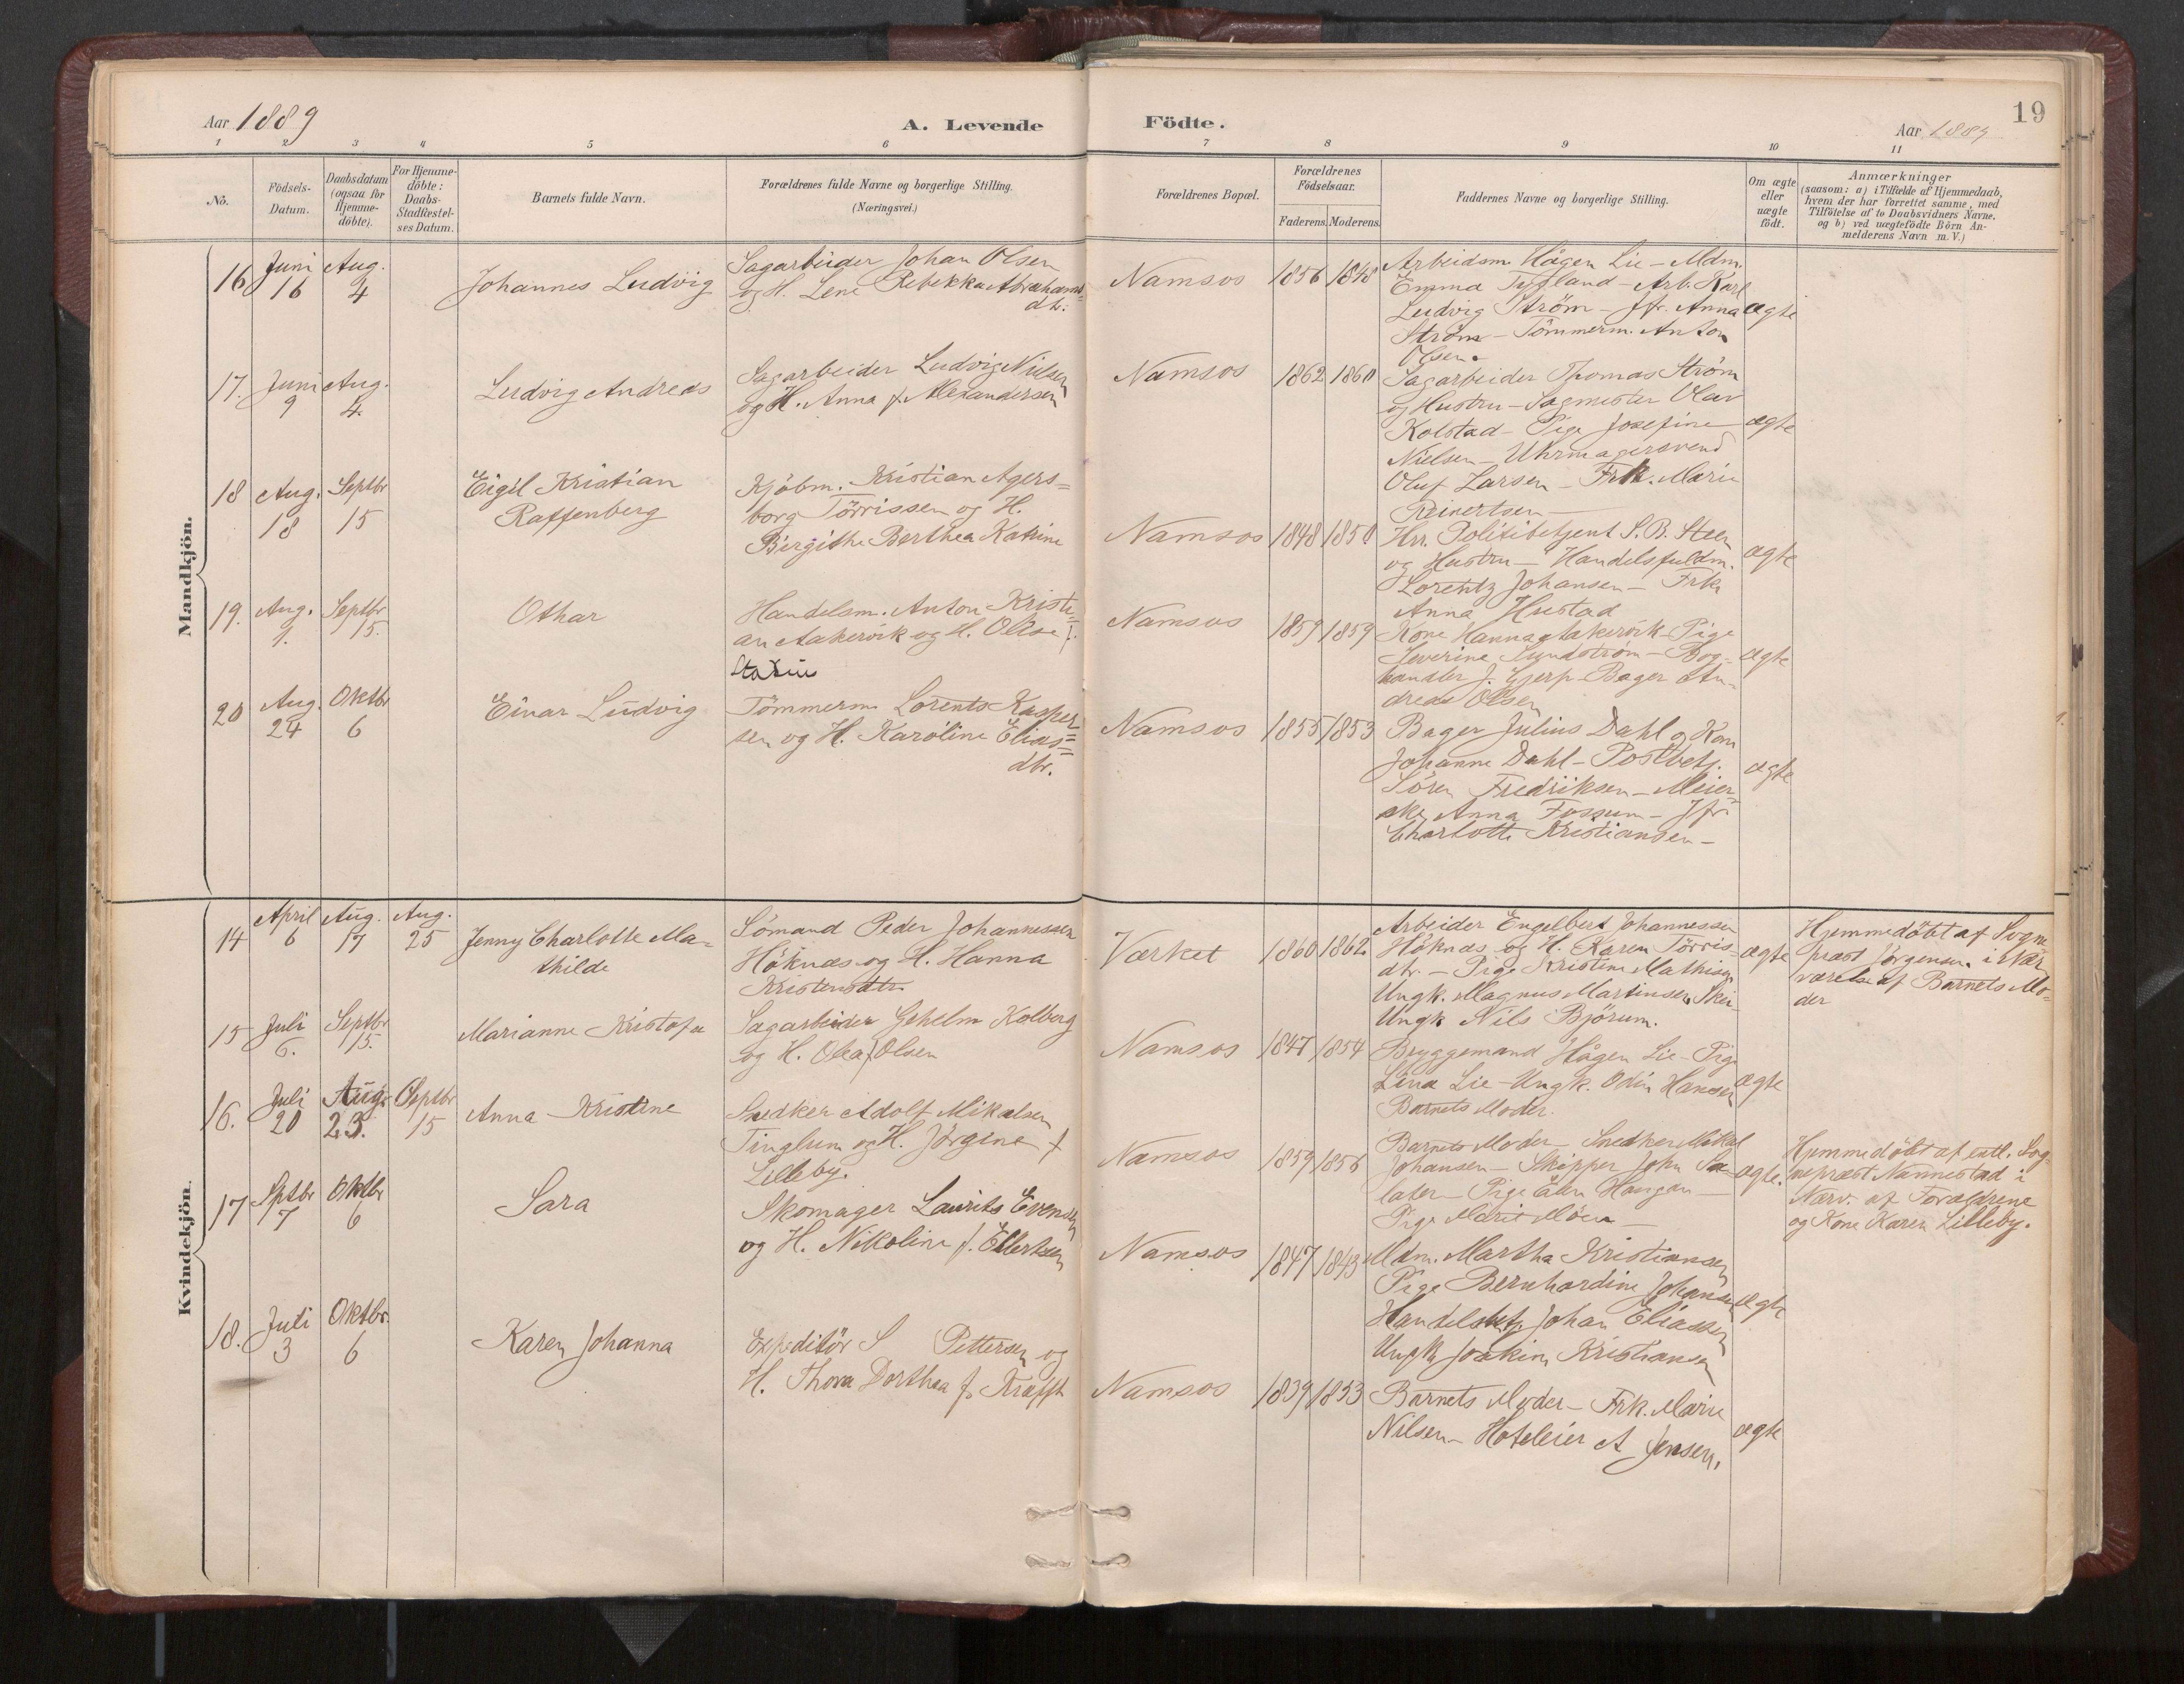 19
Aar 1889
A. Levende Födte.
Aar 1889
1 2 3 4 5 6 7 8 9 10 11
No.
Födsels-
Datum.
Daabsdatum
(ogsaa for
Hjemme-
döbte).
For Hjemme-
döbte:
Daabs-
Stadfæstel-
ses Datum.
Barnets fulde Navn.
Forældrenes fulde Navne og borgerlige Stilling.
(Næringsvei.)
Forældrenes Bopæl.
Forældrenes
Födselsaar.
Faderens Moderens
Faddernes Navne og borgerlige Stilling.
Om ægte
eller
uægte
födt.
Anmærkninger
(saasom: a) i Tilfælde af Hjemmedaab,
hvem der har forrettet samme, med
Tilföielse af to Daabsvidners Navne.
og b) ved uægtefödte Börn An-
melderens Navn m.V.)
Mandkjön.
16 Juni 16 Aug. 4
Johannes Ludvig
Sagarbeider Johan Olsen
og H. Lene Rebekka Abrahams-
dtr.
Namsos 1856 1848
Arbeidsm. Hågen Lie - Mdm.
Emma - Arb. Karl
Ludvig Ström - Jfr. Anna
Ström - Tömmerm. Anton
Olsen.
ægte
17. Juni 9 Aug. 4
Ludvig Andreas
Sagarbeider Ludvig Nilsen
og H. Anna f. Alexandersen
Namsos 1862 1860
Sagarbeider Thomas Ström
og Hustru - Sagmester Olav
Kolstad - Pige Josefine
Nielsen - Uhrmagersvend
Oluf Larsen - Frk. Marie
Reinertsen -
ægte
18 Aug. 18 Septbr 15
Eigil Kristian
Raffenberg
Kjöbm. Kristian Agers=
borg Törrissen og H.
Birgithe Berthea Katrine
Namsos 1848 1850
Hrr. Politibetjent S. B. Steen
og Hustru - Handelsfuldm.
Lorentz Johansen - Frk.
Anna Hustad
ægte
19. Aug. 9. Septbr 15.
Othar
Handelsm. Anton Kristi=
an Aakervik og H. Olise f.
Namsos 1859 1859
Kone Hanna Aakervik - Pige
Severine Lundström - Bog-
handler J. Gjerp - Bager An-
dreas Olsen
ægte
20 Aug. 24 Oktbr 6
Einar Ludvig
Tömmerm. Lorents Kasper=
sen og H. Karoline Elias=
dtr.
Namsos 1855 1853
Bager Julius Dahl og Kone
Johanne Dahl - Postbetj.
Sören Fredriksen - Meier-
ske Anna Fossum - Jfr.
Charlotte Kristiansen -
ægte
Kvindekjön.
14 April 6 Aug. 17 Aug. 25
Jenny Charlotte Ma=
thilde
Sömand Peder Johannessen
Höknæs og H. Hanna
Kristensdtr.
Værket 1860 1862
Arbeider Engelbert Johannessen
Höknæs og H. Karen Törris-
dtr. - Pige Kristine Mathisen
Ungk. Magnus Martinsen
Ungk Nils Bjørum.
ægte
Hjemmedöbt af Sogne-
præst Jörgensen i Nær-
værelse af Barnets Mo-
der
15 Juli 6. Septbr 15.
Marianne Kristofa
Sagarbeider Gehelm Kolberg
og H. Olea f. Olsen
Namsos 1847 1854
Bryggemand Hågen Lie - Pige
Lina Lie - Ungk. Odin Hansen
Barnets Moder.
ægte
16. Juli 20 Aug. 23. Septbr 15
Anna Kristine
Snedker Adolf Mikalsen
Tinglum og H. Jörgine f
Lilleby.
Namsos 1859 1856
Barnets Moder - Snedker Mikal
Johansen - Skipper John Sa-
later - Pige Elen Haugan -
Pige Marit Moen -
ægte.
Hjemmedöbt af Sog-
nepræst Nannestad i
Nærv. af Forældrene
og Kone Karen Lilleby.
17 Sptbr 7 Oktbr 6
Sara
Skomager Laurits Evensen
og H. Nikoline f. Ellertsen
Namsos 1847 1843
Mdm. Martha Kristiansen
Pige Bernhardine Johansen
Handelsbetj. Johan Eliassen
Ungk Joakim Kristiansen
ægte
18. Juli 3 Oktbr. 6
Karen Johanna
Expeditör S Pettersen og
H. Thora Dorthea f. Krafft
Namsos 1839 1853
Barnets Moder - Frk. Marie
Nilsen - Hoteleier A Jensen.
ægte